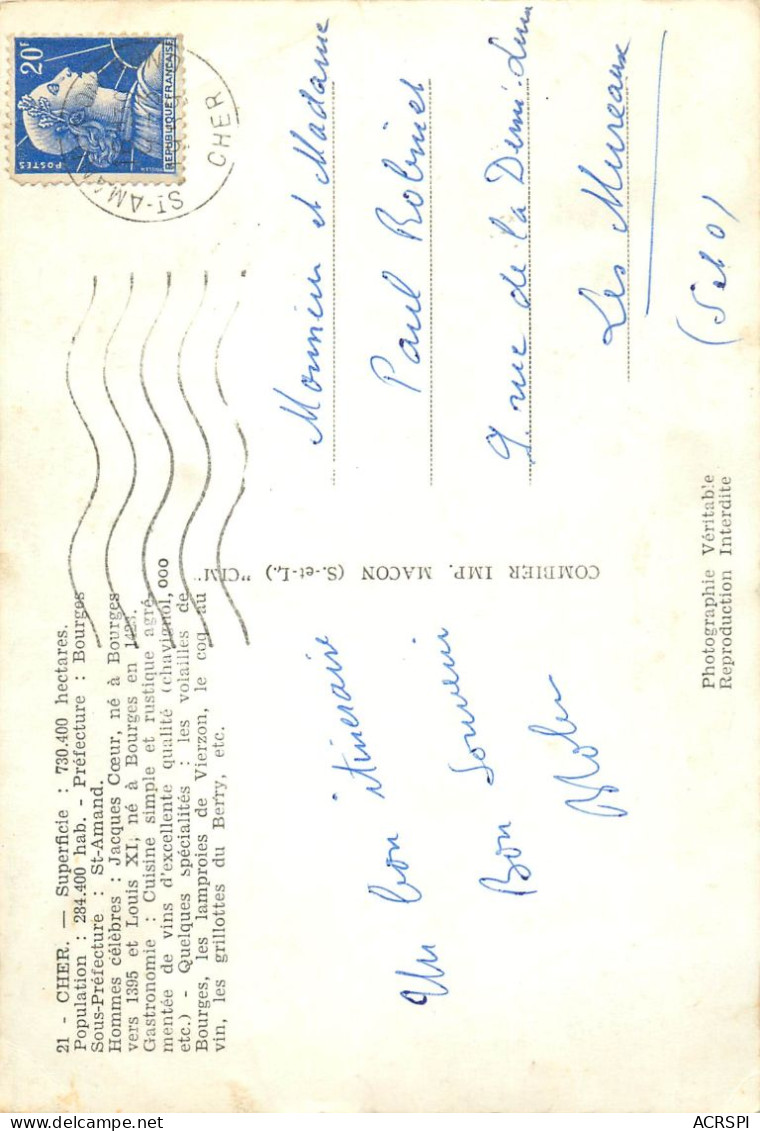 21 - CHER. — Superficie : 730.400 hectares.
Population : 284.400 hab. - Préfecture : Bourges
Sous-Préfecture : St-Amand.
Hommes célèbres : Jacques Cœur, né à Bourges
vers 1395 et Louis XI, né à Bourges en 1423.
Gastronomie : Cuisine simple et rustique agré-
mentée de vins d'excellente qualité (chavignol,
etc.) - Quelques spécialités : les volailles de
Bourges, les lamproies de Vierzon, le coq au
vin, les grillottes du Berry, etc.
Un bon itineraire
Bon Souvenir
COMBIER IMP. MACON (S.-et-L.) "CIM"
20F
POSTES
REPUBLIQUE FRANÇAISE
ST-AMAND
CHER
Monsieur et Madame
Paul Robinet
9 rue de la Demi-Lune
Les Mureaux
(S et O)
Photographie Véritable
Reproduction Interdite
ACRSPI